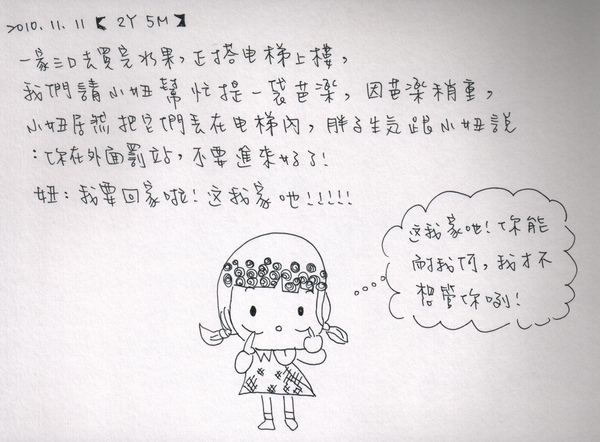 2010.11.11【2Y 5M】
一家三口去買完水果,正搭电梯上樓,
我們請小妞幫忙提一袋芭樂,因芭樂稍重,
小妞居然把它們丟在电梯內,胖子生気跟小妞說
:你在外面罰站,不要進來好了!
妞:我要回家啦!这我家吔!!!!!
这我家吔!你能
耐我何,我才不
想管你咧!